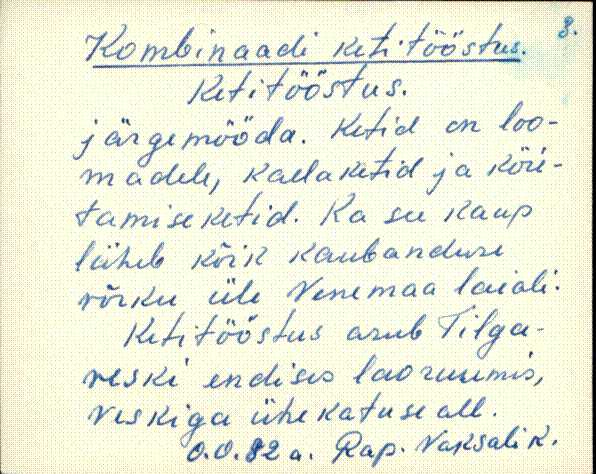 3.
Kombinaadi ketitööstus.
Ketitööstus.
järgemööda. Ketid on loo-
madele, kaelaketid ja köie-
tamiseketid. Ka see kaup
läheb kõik kaubanduse
võrku üle Venemaa laiali.
Ketitööstus asub Tilga-
veski endises laoruumis,
veskiga ühe katuse all.
O.O. 82 a. Rap. Vaksali k.